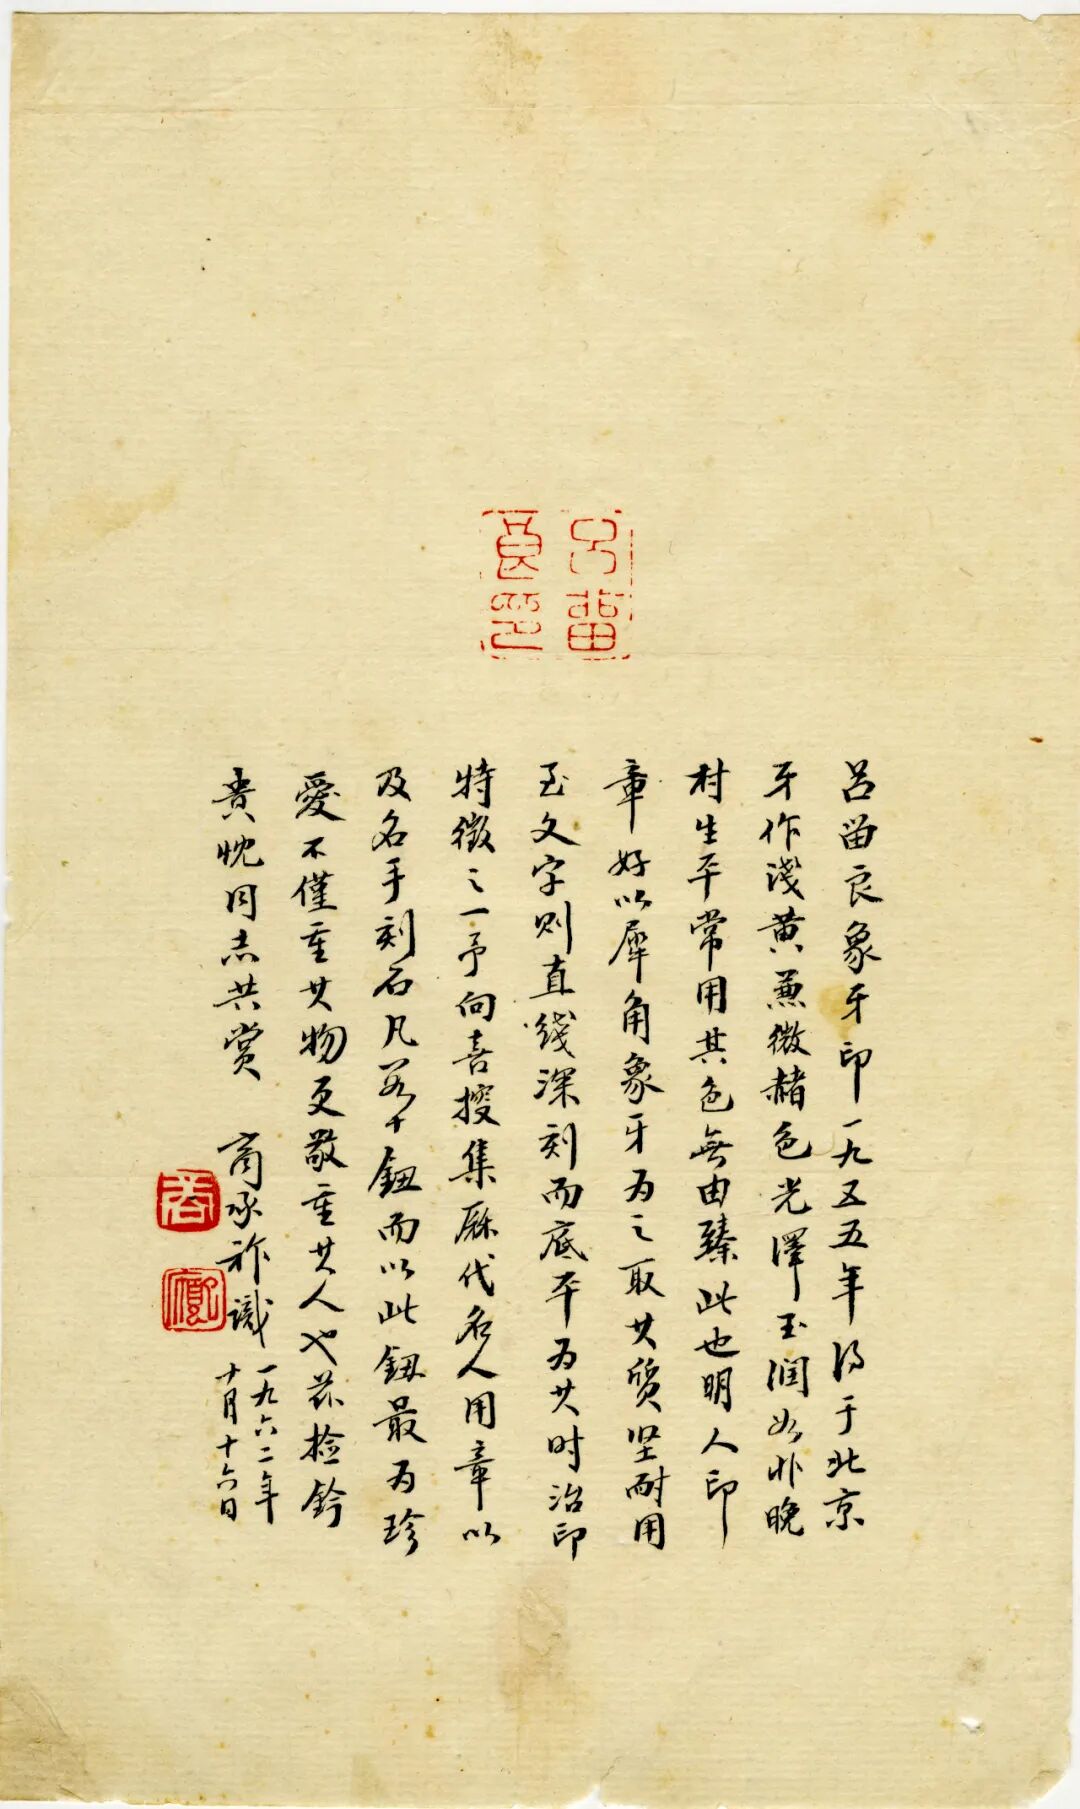 吕留良印
吕留良象牙印一九五五年得于北京
牙作淺黄兼微赭色光澤玉润如非晚
村生平常用其色無由臻此也明人印
章好以犀角象牙为之取其质坚耐用
至文字则直线深刻而底平为其时治印
特徵之一予向喜搜集厤代名人用章以
及名手刻石凡若干鈕而以此鈕最为珍
愛不僅重其物更敬重其人也兹捡鈐
贵忱同志共赏 商承祚識 一九六二年
十月十六日